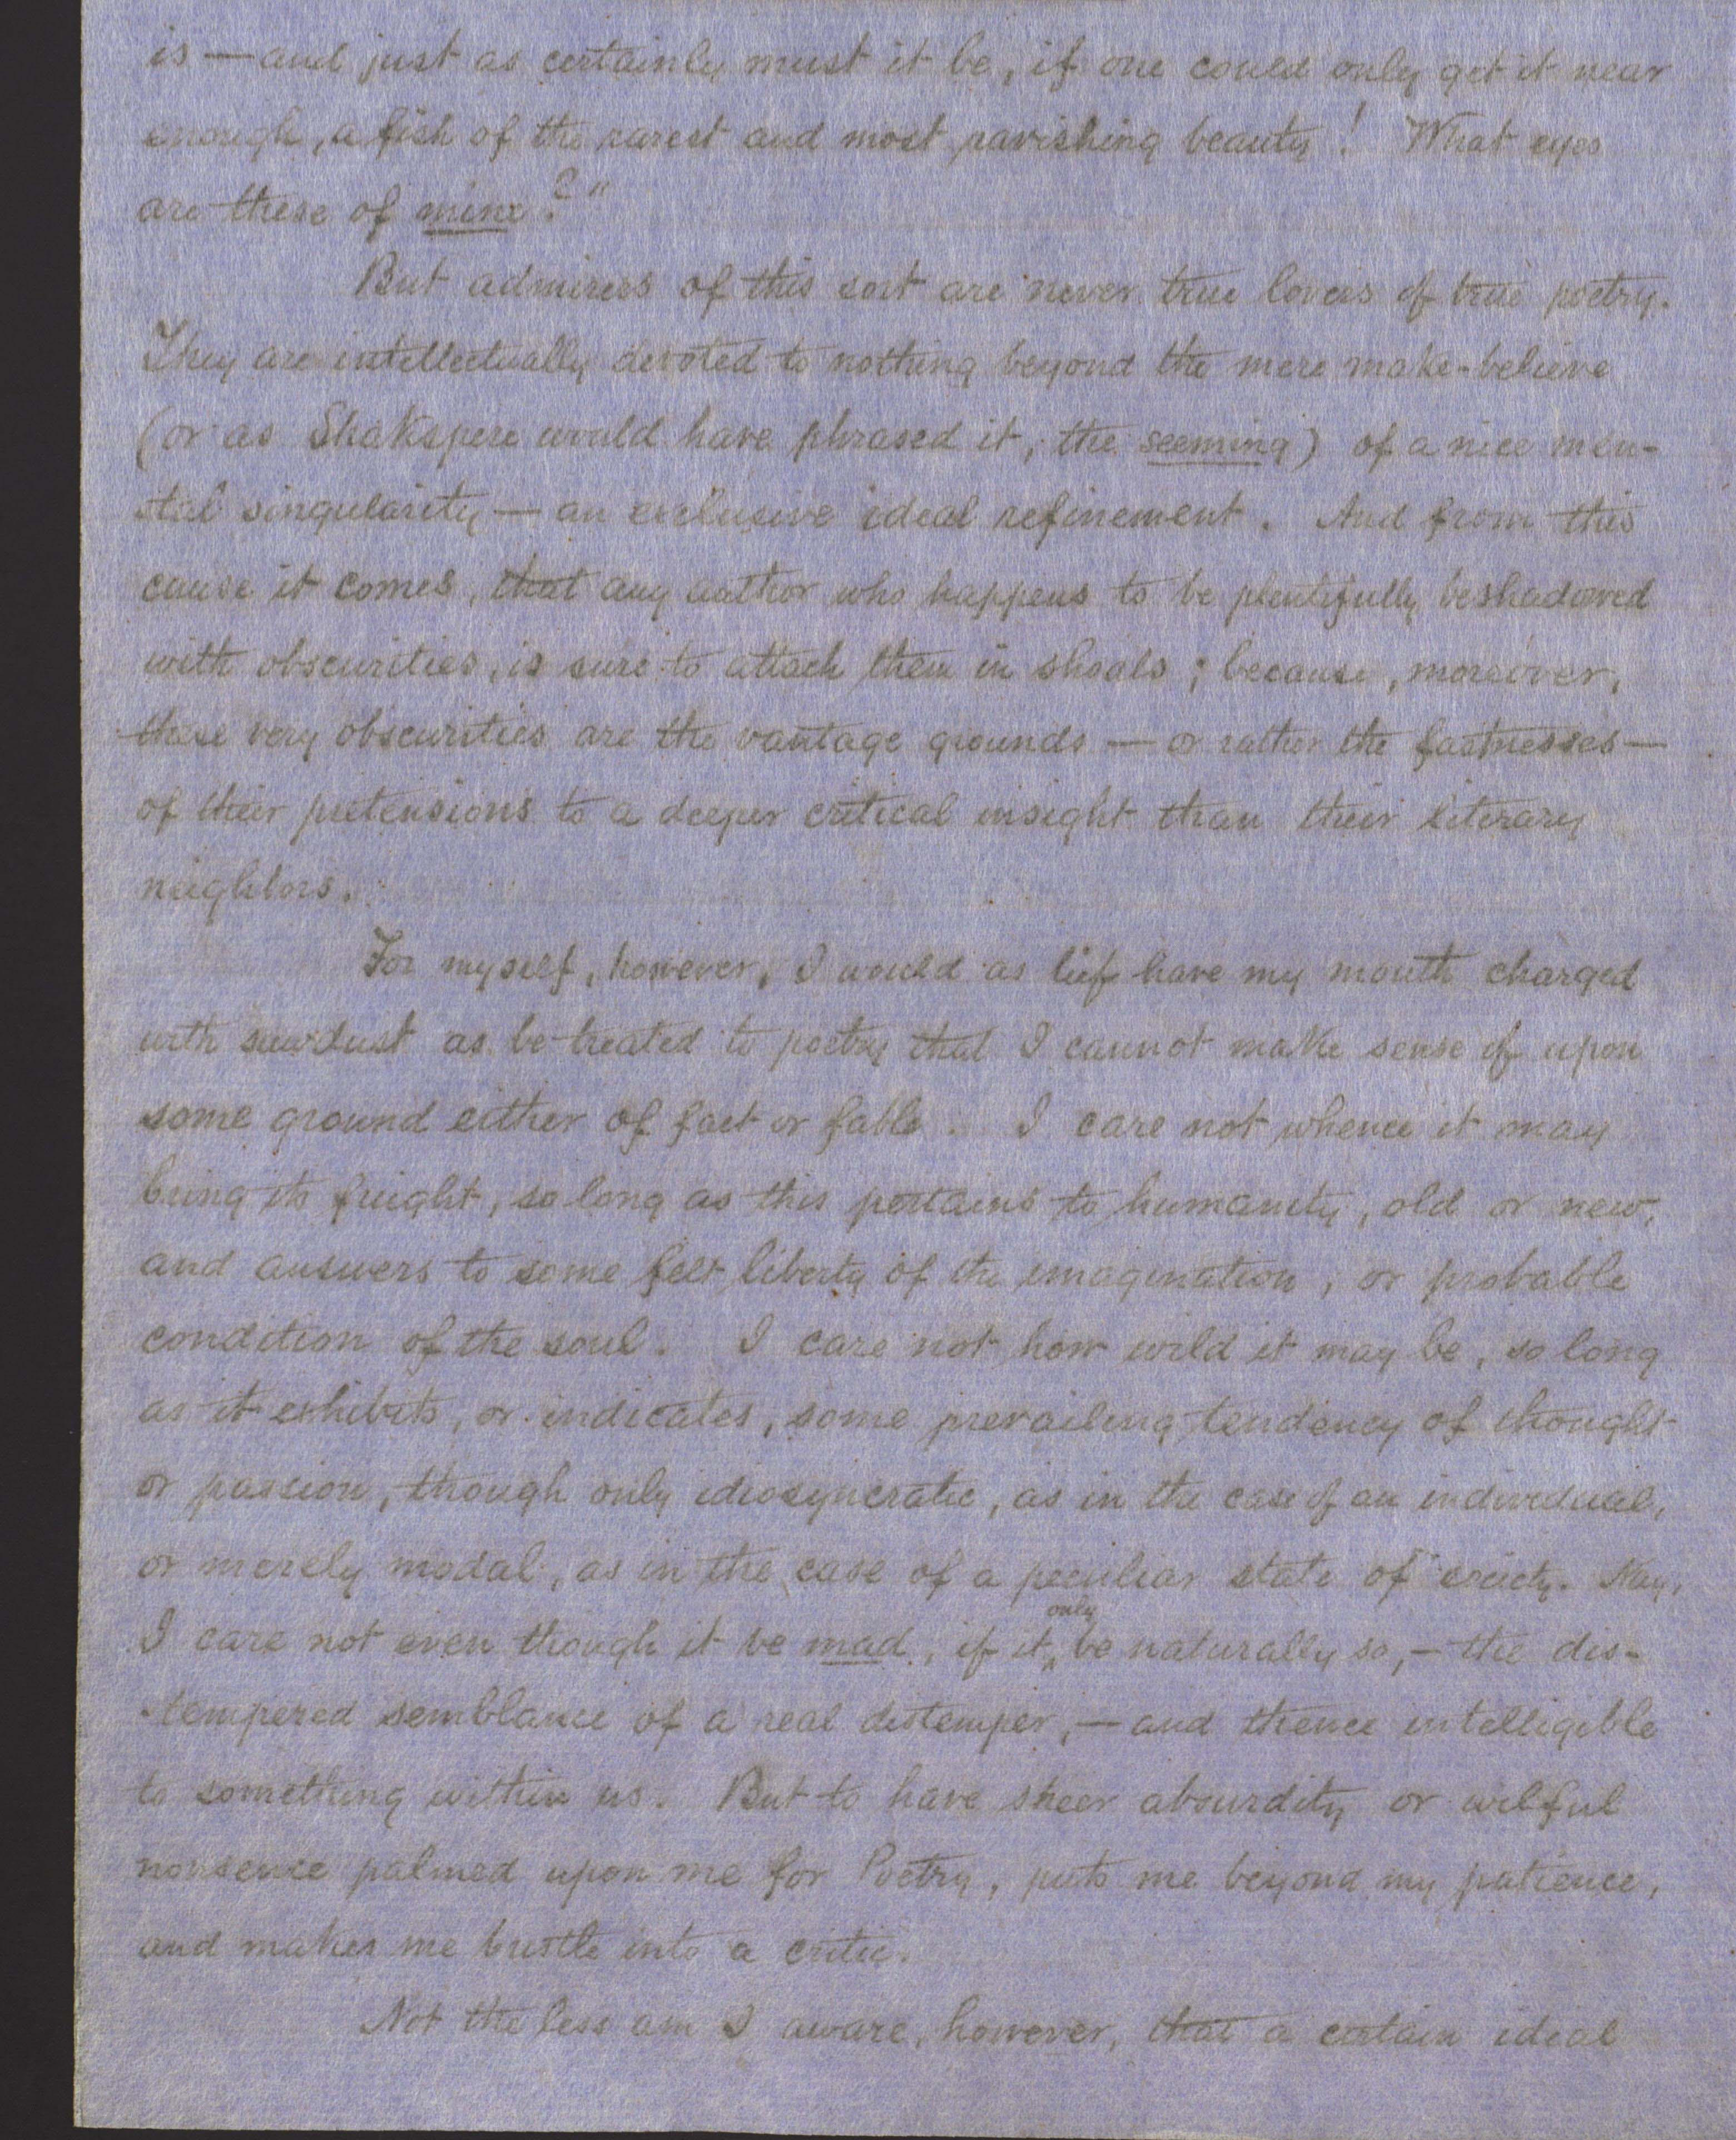 is — and just as certainly must it be, if one could only get it near
enough, a fish of the rarest and most ravishing beauty! What eyes
are these of mine?"
But admirers of this sort are never true lovers of true poetry.
They are intellectually devoted to nothing beyond the mere make-believe
(or as Shakspere would have phrased it, the seeming) of a nice men-
tal singularity — an exclusive ideal refinement. And from this
cause it comes, that any author who happens to be plentifully beshadowed
with obscurities, is sure to attach them in shoals; because, moreover,
these very obscurities are the vantage grounds — or rather the fastnesses —
of their pretensions to a deeper critical insight than their literary
neighbors.
For myself, however, I would as lief have my mouth charged
with sawdust as be treated to poetry that I cannot make sense of upon
some ground either of fact or fable. I care not whence it may
bring its freight, so long as this pertains to humanity, old or new,
and answers to some felt liberty of the imagination, or probable
condition of the soul. I care not how wild it may be, so long
as it exhibits, or indicates, some prevailing tendency of thought
or passion, though only idiosyncratic, as in the case of an individual,
or merely modal, as in the case of a peculiar state of society. Nay,
I care not even though it be mad, if it only be naturally so, — the dis-
tempered semblance of a real distemper, — and thence intelligible
to something within us. But to have sheer absurdity or wilful
nonsence palmed upon me for Poetry, puts me beyond my patience,
and makes me bustle into a critic.
Not the less am I aware, however, that a certain ideal